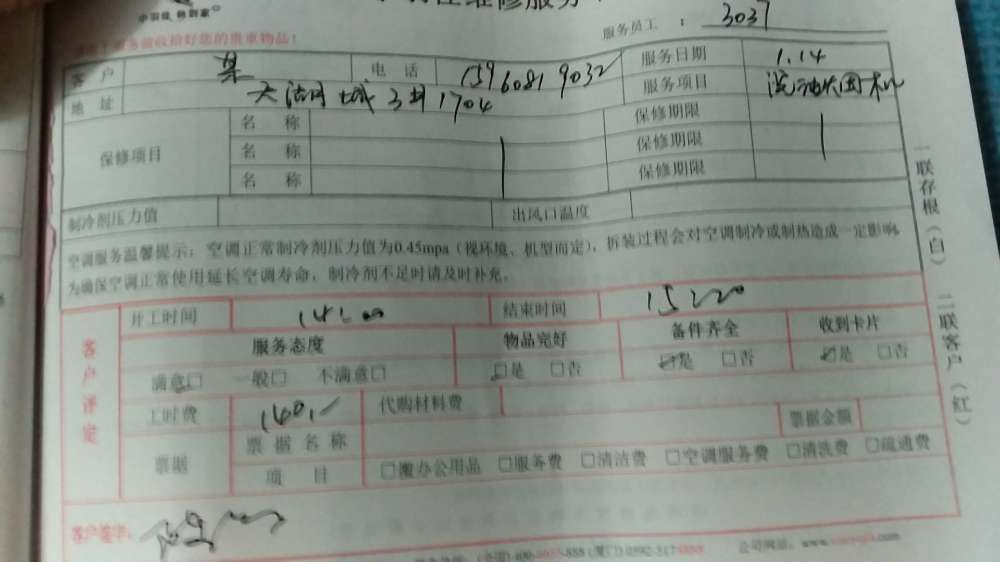 维修服务
服务员工 : 3037
服务前收拾好您的贵重物品!
客户 某 电话 15960819032 服务日期 1.14
地址 城3#1704 服务项目 洗油烟机
保修项目 名称 保修期限
名称 保修期限
名称 保修期限
制冷剂压力值 出风口温度
空调服务温馨提示:空调正常制冷剂压力值为0.45mpa(视环境、机型而定),拆装过程会对空调制冷或制热造成一定影响。
为确保空调正常使用延长空调寿命,制冷剂不足时请及时补充。
一联存根(白) 二联客户(红)
客户评定
开工时间 14:00 结束时间 15:20
服务态度 物品完好 备件齐全 收到卡片
满意□ 一般□ 不满意□ □是 □否 □是 □否 □是 □否
工时费 160 代购材料费
票据 票据名称 票据金额
项目 □搬办公用品 □服务费 □清洁费 □空调服务费 □清洗费 □疏通费
客户签字:
公司网站:www.